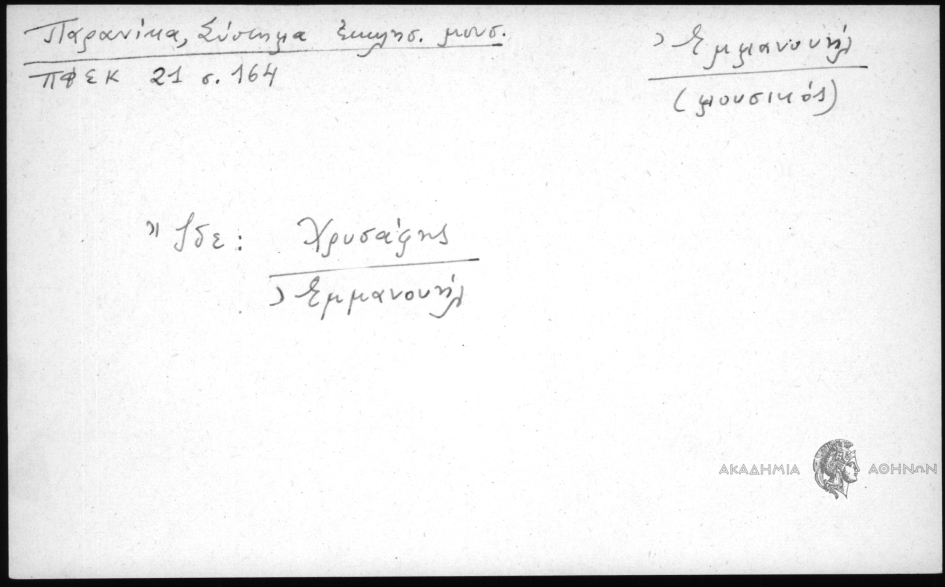 Παρανίκα, Σύστημα ἐκκλησ. μουσ.
ΠΦΕΚ 21 σ. 164
Ἐμμανουήλ
(μουσικός)
Ἴδε: Χρυσάφης
Ἐμμανουήλ
ΑΚΑΔΗΜΙΑ ΑΘΗΝΩΝ